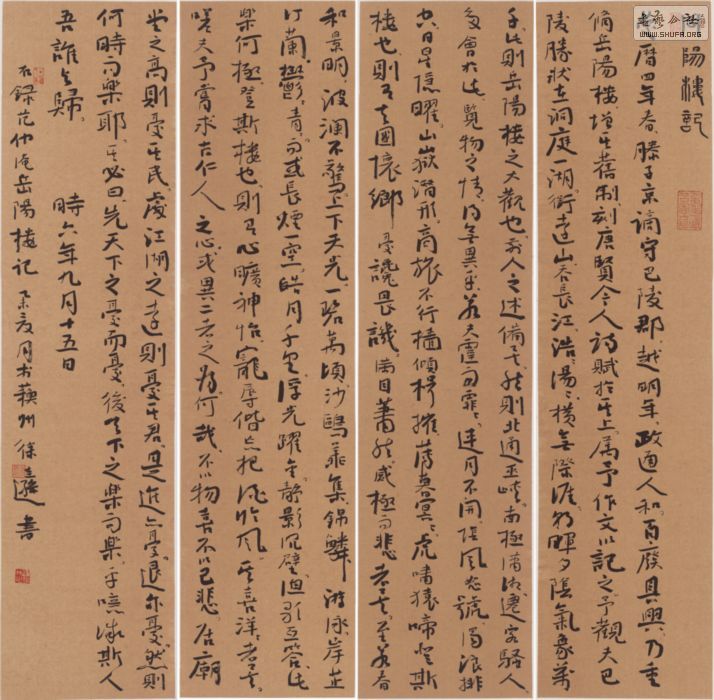 書法公社
WWW.SHUFA.ORG
岳陽樓記
慶曆四年春滕子京謫守巴陵郡越明年政通人和百廢具興乃重
脩岳陽樓增其舊制刻唐賢今人詩賦於其上屬予作文以記之予觀夫巴
陵勝狀在洞庭一湖銜遠山吞長江浩〻湯〻橫無際涯朝暉夕陰氣象萬
千此則岳陽樓之大觀也前人之述備矣然則北通巫峽南極瀟湘遷客騷人
多會於此覽物之情得無異乎若夫霪雨霏〻連月不開陰風怒號濁浪排
空日星隱曜山嶽潛形商旅不行檣傾楫摧薄暮冥〻虎嘯猿啼登斯
樓也則有去國懷鄉憂讒畏譏滿目蕭然感極而悲者矣至若春
和景明波瀾不驚上下天光一碧萬頃沙鷗翔集錦鱗游泳岸芷
汀蘭鬱〻青〻而或長煙一空皓月千里浮光躍金靜影沉璧漁歌互答此
樂何極登斯樓也則有心曠神怡寵辱偕忘把酒臨風其喜洋〻者矣
嗟夫予嘗求古仁人之心或異二者之為何哉不以物喜不以己悲居廟
堂之高則憂其民處江湖之遠則憂其君是進亦憂退亦憂然則
何時而樂耶其必曰先天下之憂而憂後天下之樂而樂乎噫微斯人
吾誰與歸 時六年九月十五日
右錄范仲淹岳陽樓記 夏月於蘇州徐 書